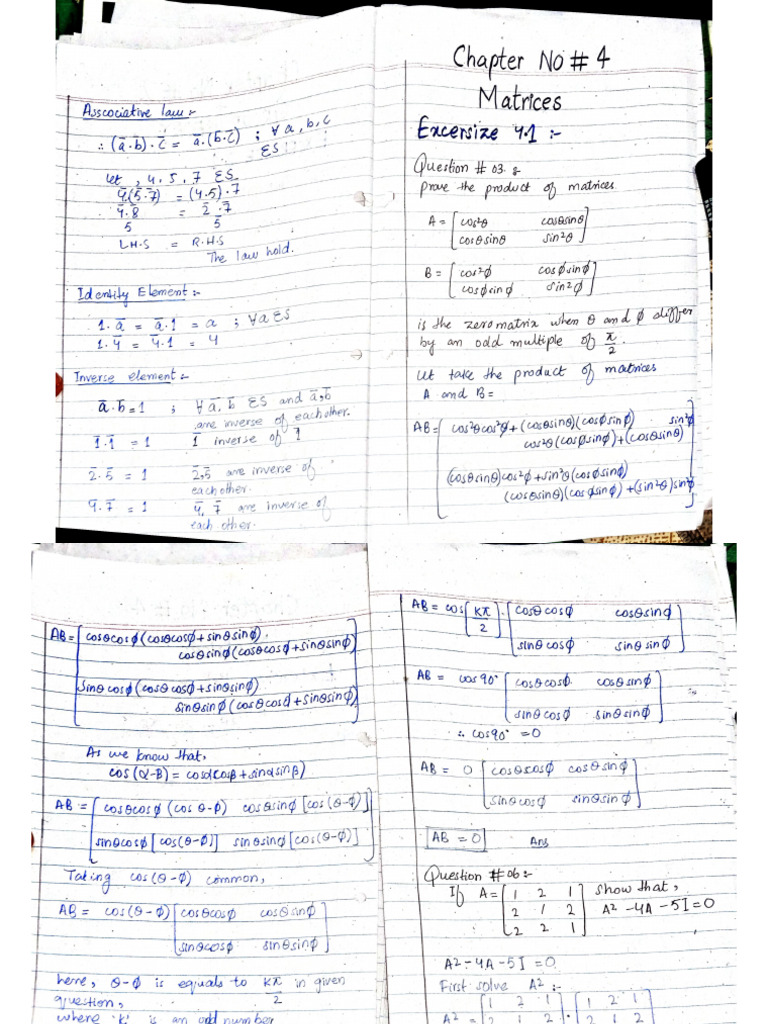 Asscociative law:-
∴ (a̅.b̅).c̅ = a̅.(b̅.c̅) ; ∀ a, b, c
ES
Let , 4, 5, 7 ES
4̅.(5̅.7̅) = (4.5).7
4̅.8̅ = 2̅.7̅
5 5
L.H.S = R.H.S
The law hold.
Identity Element:-
1.a̅ = a̅.1 = a ; ∀a ES
1.4̅ = 4̅.1 = 4
Inverse element:-
a̅.b̅=1 ; ∀ a̅, b̅ ES and a̅,b̅
are inverse of each other.
1̅.1̅ = 1 1̅ inverse of 1̅
2̅.5̅ = 1 2̅,5̅ are inverse of
each other.
4̅.7̅ = 1 4̅, 7̅ are inverse of
each other.
Chapter No # 4
Matrices
Excersize 4.1 :-
Question # 03 :-
prove the product of matrices
A = [cos²θ cosθsinθ]
[cosθsinθ sin²θ]
B = [cos²ϕ cosϕsinϕ]
[cosϕsinϕ sin²ϕ]
is the zero matrix when θ and ϕ differ
by an odd multiple of π/2.
Let take the product of matrices
A and B=
AB= [cos²θcos²ϕ+(cosθsinθ)(cosϕsinϕ) sin²ϕ
cos²θ(cosϕsinϕ)+(cosθsinθ)
(cosθsinθ)cos²ϕ+sin²θ(cosϕsinϕ)
(cosθsinθ)(cosϕsinϕ)+(sin²θ)sin²ϕ]
AB= [cosθcosϕ(cosθcosϕ+sinθsinϕ).
cosθsinϕ(cosθcosϕ+sinθsinϕ)
sinθcosϕ(cosθcosϕ+sinθsinϕ)
sinθsinϕ(cosθcosϕ+sinθsinϕ)]
As we know that,
cos(α-β) = cosαcosβ+sinαsinβ)
AB = [cosθcosϕ(cosθ-ϕ) cosθsinϕ[cos(θ-ϕ)]]
[sinθcosϕ[cos(θ-ϕ)] sinθsinϕ[cos(θ-ϕ)]]
Taking cos(θ-ϕ) common,
AB= cos(θ-ϕ)[cosθcosϕ cosθsinϕ]
[sinθcosϕ sinθsinϕ]
here, θ-ϕ is equals to kπ/2 in given
question,
where 'k' is an odd number
AB = cos[kπ/2].[cosθcosϕ cosθsinϕ]
[sinθcosϕ sinθsinϕ]
AB = cos90° [cosθcosϕ cosθsinϕ]
[sinθcosϕ sinθsinϕ]
∴ cos90° =0
AB = 0 [cosθcosϕ cosθsinϕ]
[sinθcosϕ sinθsinϕ]
AB = 0 Ans
Question #06:-
If A= [1 2 1] show that,
[2 1 2] A² -4A -5I =0
[2 2 1]
A²-4A-5I =0
First solve A² :-
A² = [1 2 1].[1 2 1]
[2 1 2] [2 1 2]